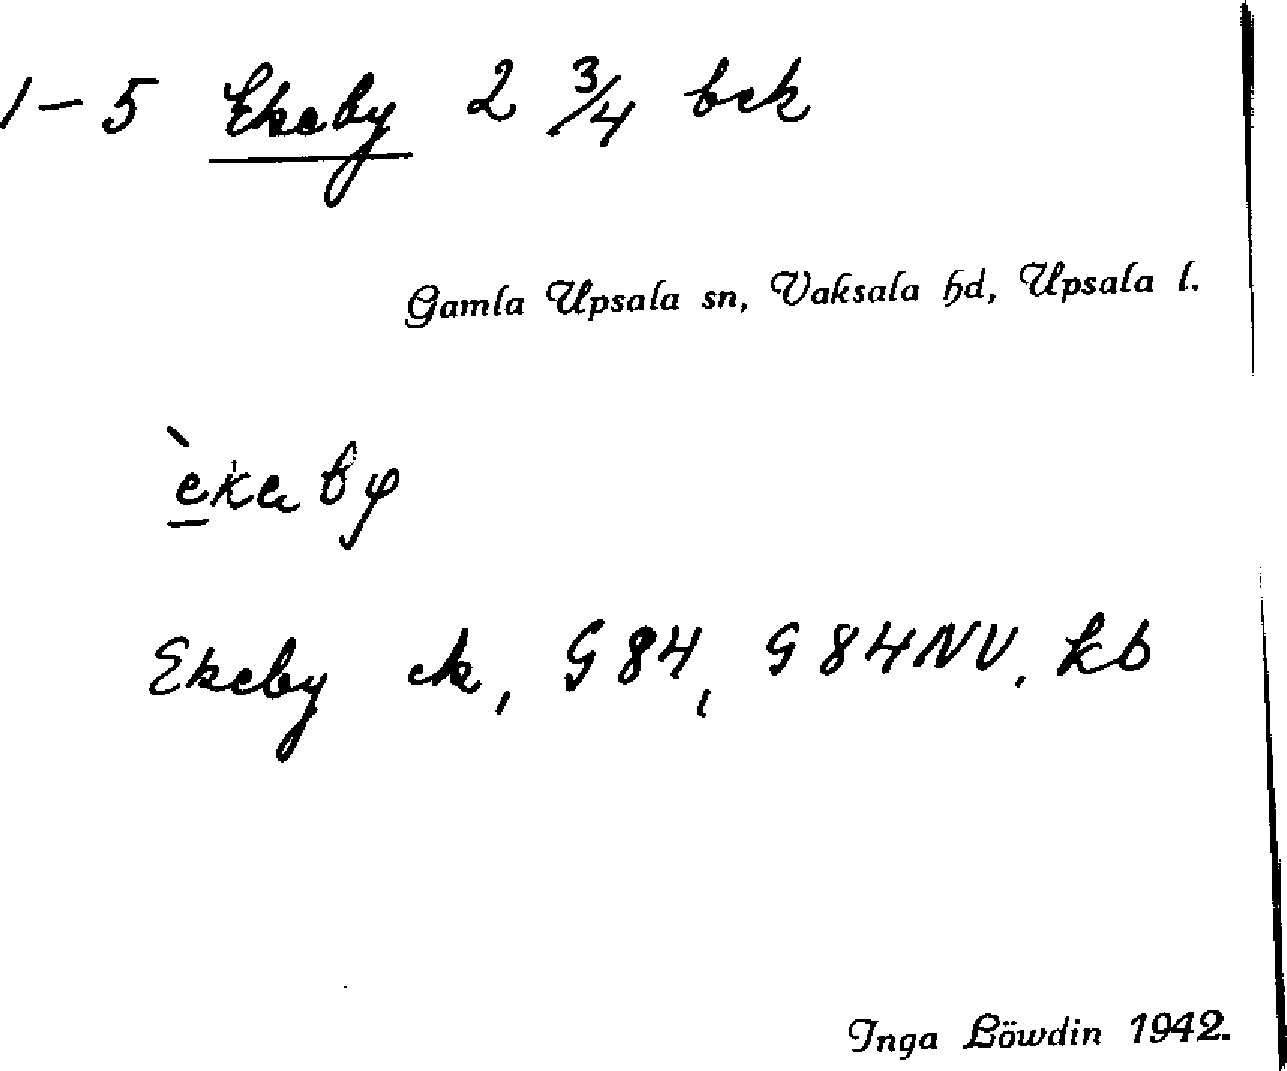 1-5 Ekeby 2 3/4 bek
Gamla Upsala sn, Vaksala hd, Upsala l.
Ekeby ek, G 84, G 84 NV, kb
Inga Löwdin 1942.